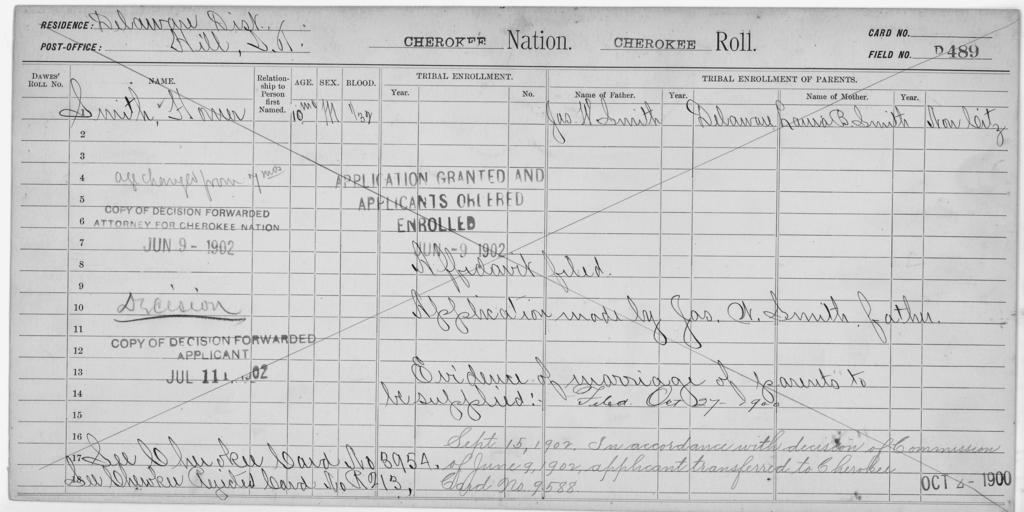 RESIDENCE: Delaware Dist.
POST-OFFICE: Hill, I.T.
CHEROKEE Nation. CHEROKEE Roll.
CARD NO.
FIELD NO. D489
DAWES' ROLL No. NAME. Relationship to Person first Named. AGE. SEX. BLOOD. TRIBAL ENROLLMENT. Year. No. TRIBAL ENROLLMENT OF PARENTS. Name of Father. Year. Name of Mother. Year.
Smith, Homer 10mo M 1/32 Jas W Smith Delaware Louisa B Smith Non Citz
2
3
4 age changed from 7 mos APPLICATION GRANTED AND
5 APPLICANTS ORDERED
COPY OF DECISION FORWARDED
6 ATTORNEY FOR CHEROKEE NATION ENROLLED
7 JUN 9 - 1902 JUN -9 1902
8 Affidavit filed.
9
10 Decision Application made by Jas. W. Smith, father.
11
COPY OF DECISION FORWARDED
12 APPLICANT
13 JUL 11 1902 Evidence of marriage of parents to
14 be supplied:- Filed Oct 27- 1900
15
16 Sept. 15, 1902. In accordance with decision of Commission
17 See Cherokee Card No 3954. of June 9, 1902, applicant transferred to Cherokee
18 See Cherokee Rejected Card No R213, Card No. 9588.
OCT 4 - 1900